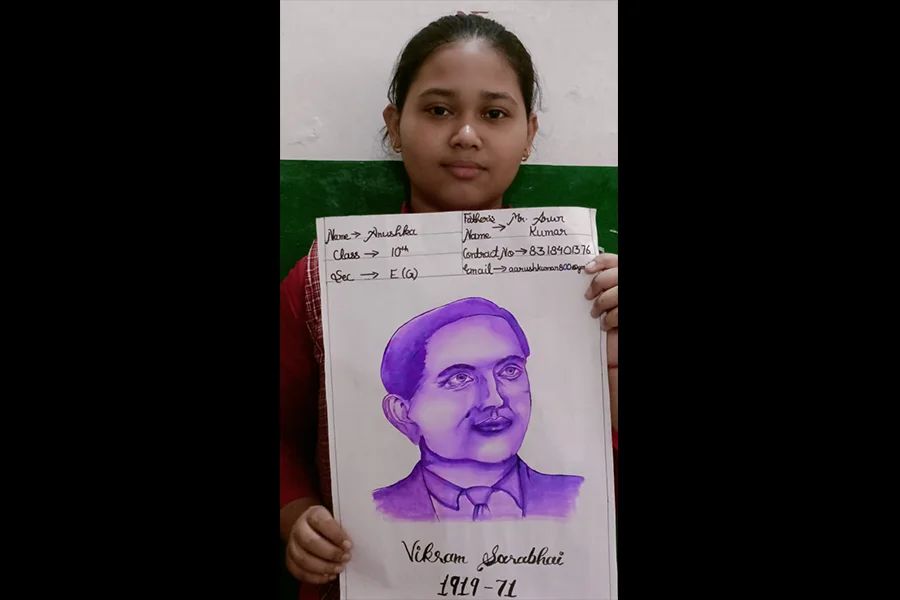 Name → Anushka
Class → 10th
Sec → E (G)
Father's Name → Mr. Arun Kumar
Contract No → 8318401376
Email → aarushkumar800@gm
Vikram Sarabhai
1919-71